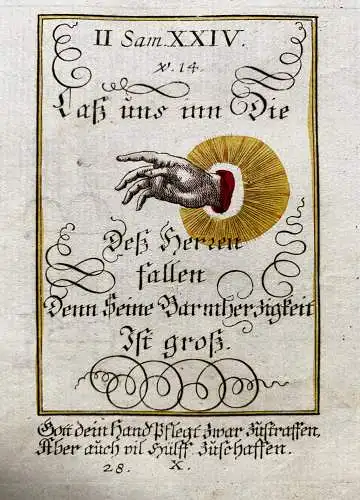 II Sam. XXIV.
v. 14.
Laß uns inn Die
Deß Herren
fallen
Denn Seine Barmherzigkeit
Ist groß.
Gott dein Hand Pflegt zwar zustraffen,
Aber auch vil Hülff zuschaffen.
28. X.